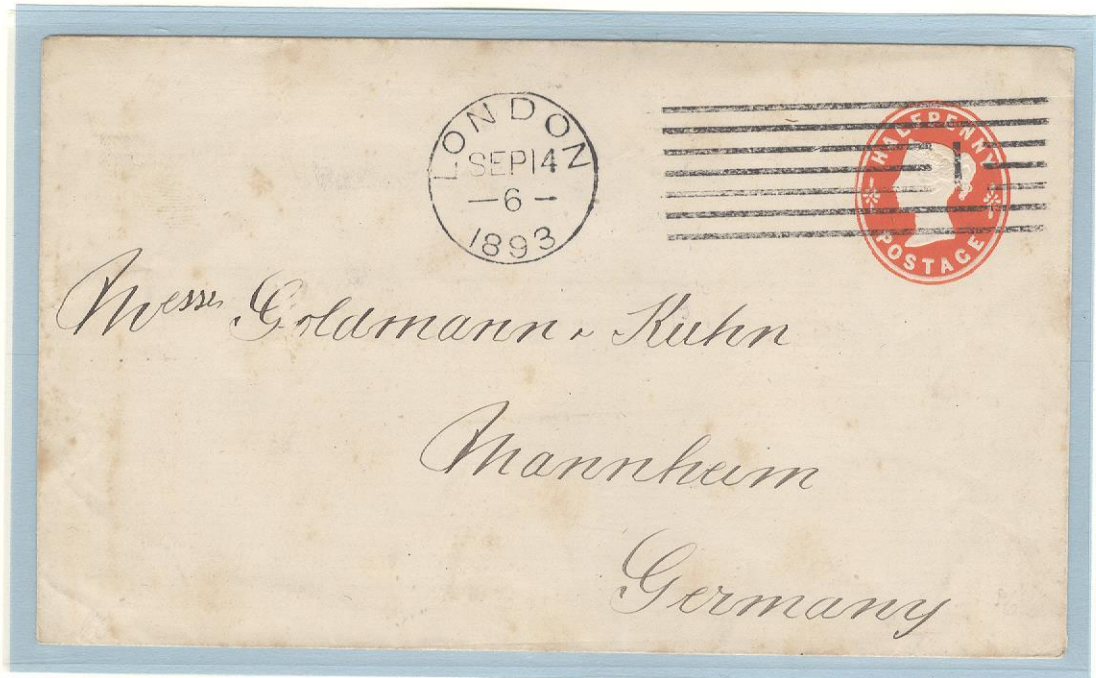 LONDON
SEP 14
— 6 —
1893
1
HALFPENNY
POSTAGE
Messrs Goldmann & Kuhn
Mannheim
Germany